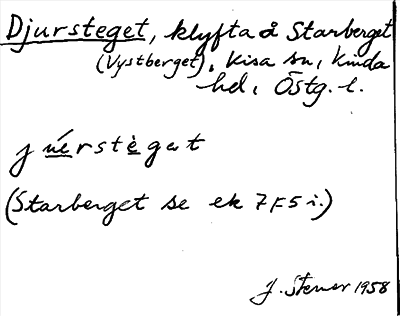 Djursteget, klyfta å Starberget
(Vystberget), Kisa sn, Kinda
hd, Östg. l.
júerstègat
(Starberget se ek 7F5i.)
J. Stener 1958